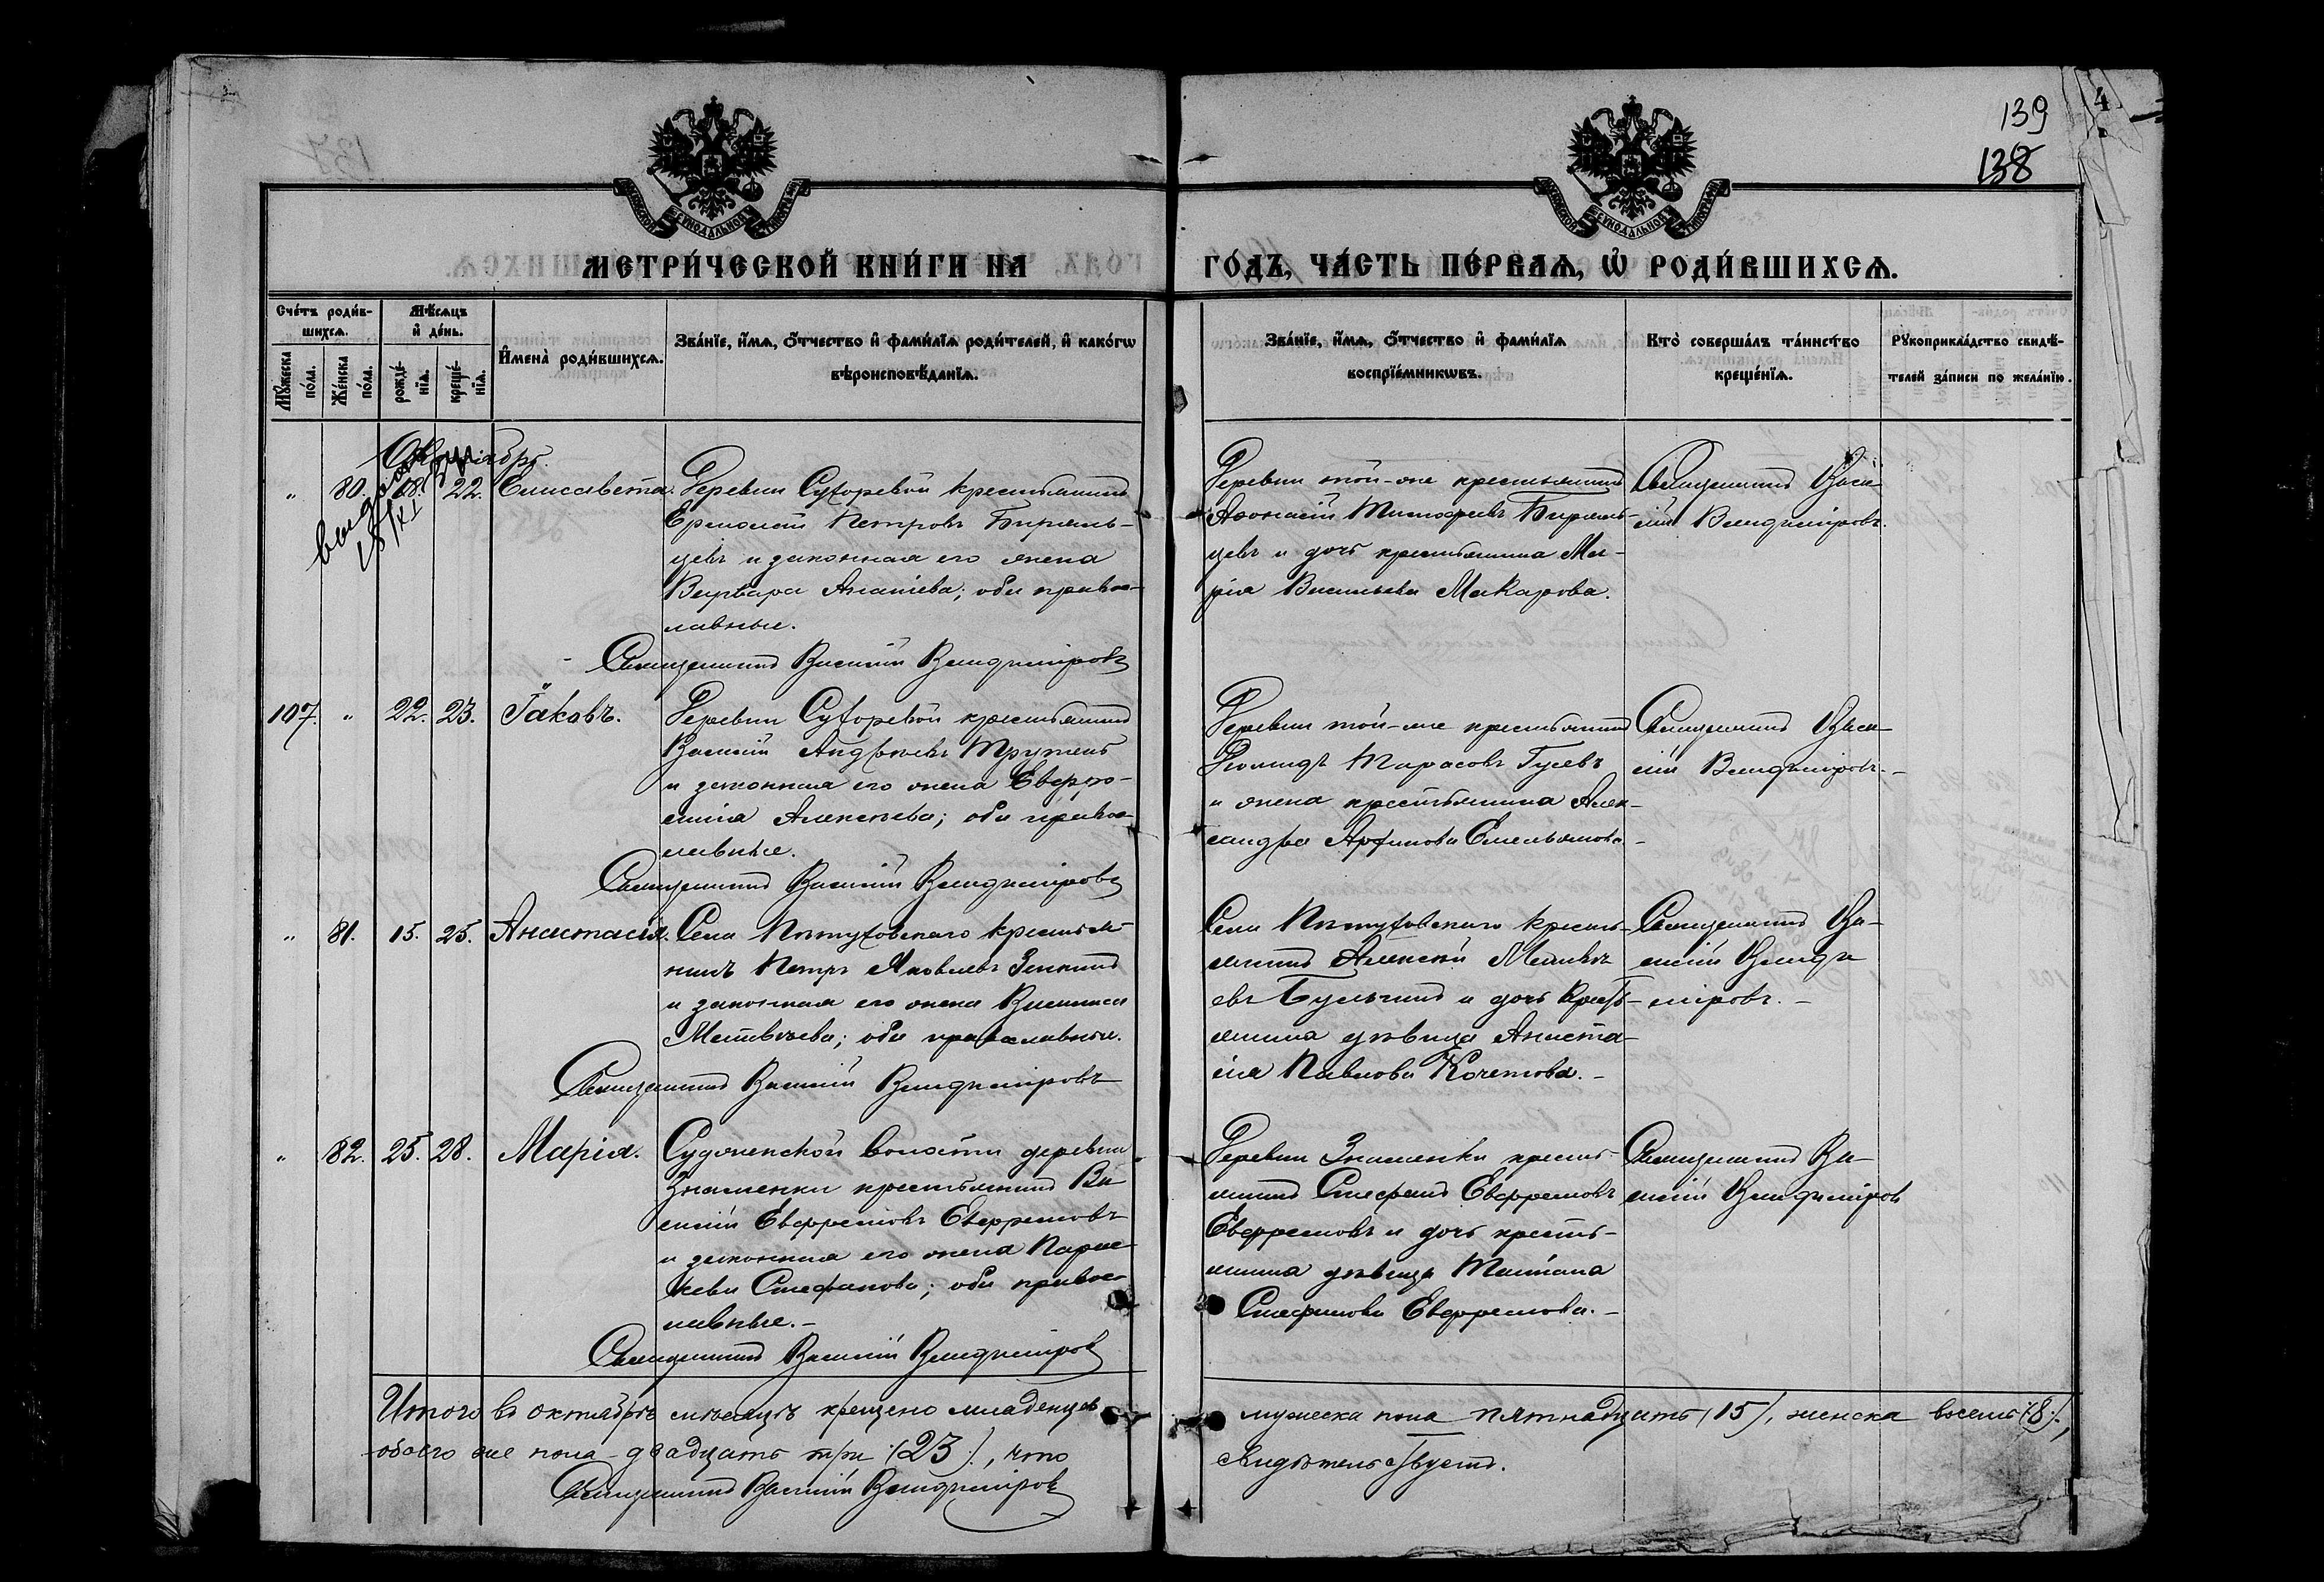 139
138
МЕТРИ́ЧЕСКОЙ КНИ́ГИ НА
ГО́ДЪ, ЧА́СТЬ ПЕ́РВАѦ, Ѡ РОДИ́ВШИХСѦ.
Сче́тъ роди́в-
шихсѧ.
Мꙋ́жеска
по́ла.
Же́нска
по́ла.
Мѣ́сѧцъ
и де́нь.
рожде́-
нїѧ.
креще́-
нїѧ.
Имена̀ роди́вшихсѧ.
Зва́нїе, и́мѧ, ѻ́тчество и фами́лїѧ роди́телей, и како́гѡ
вѣроисповѣ́данїѧ.
Зва́нїе, и́мѧ, ѻ́тчество и фами́лїѧ
воспрїе́мникѡвъ.
Кто̀ соверша́лъ та́инство
креще́нїѧ.
Рꙋкоприкла́дство свидѣ́-
телей за́писи по жела́нїю.
Октябрь.
" 80. 18. 22. Елисавета.
Деревни Суторевой крестьянинъ
Ермолай Петровъ Бирюль-
цевъ и законная его жена
Варвара Ананіева; оба правос-
лавные.
Священникъ Василій Владиміровъ
Деревни той-же крестьянинъ
Афонасій Тимофеевъ
цевъ и дочь крестьянина Ма-
рія Васильева Макарова.
Священникъ Васи-
лій Владиміровъ.
107. " 22. 23. Іаковъ.
Деревни Суторевой крестьянинъ
Василій Андреевъ
и законная его жена Евфро-
синія Алексѣева; оба правос-
лавные.
Священникъ Василій Владиміровъ
Деревни той-же крестьянинъ
Тарасовъ Гусевъ
и жена крестьянина Алек-
сандра Емельянова
Священникъ Васи-
лій Владиміровъ.
" 81. 15. 25. Анастасія.
Села Пѣтуховскаго крестья-
нинъ Петръ Яковлевъ Зенкинъ
и законная его жена Василиса
Матвѣева; оба православные.
Священникъ Василій Владиміровъ
Села Пѣтуховскаго кресть-
янинъ Алексѣй
евъ и дочь крестъ-
янина дѣвица Анаста-
сія Павлова Кочетова.
Священникъ Ва-
силій Влади-
міровъ.
" 82. 25. 28. Марія.
волости деревни
Знаменки крестьянинъ Ва-
силій Евфремовъ Евфремовъ
и законная его жена Парас-
кева Стефанова; оба правос-
лавные.
Священникъ Василій Владиміровъ
Деревни Знаменки кресть-
янинъ Стефанъ Евфремовъ
Евфремовъ и дочь кресть-
янина дѣвица Татіана
Стефанова Евфремова.
Священникъ Ва-
силій Владиміровъ
Итого въ октябрѣ мѣсяцѣ крещено младенцевъ
мужеска пола пятнадцать (15), женска восемь (8),
обоего же пола двадцать три (23), что
свидѣтельствуетъ.
Священникъ Василій Владиміровъ